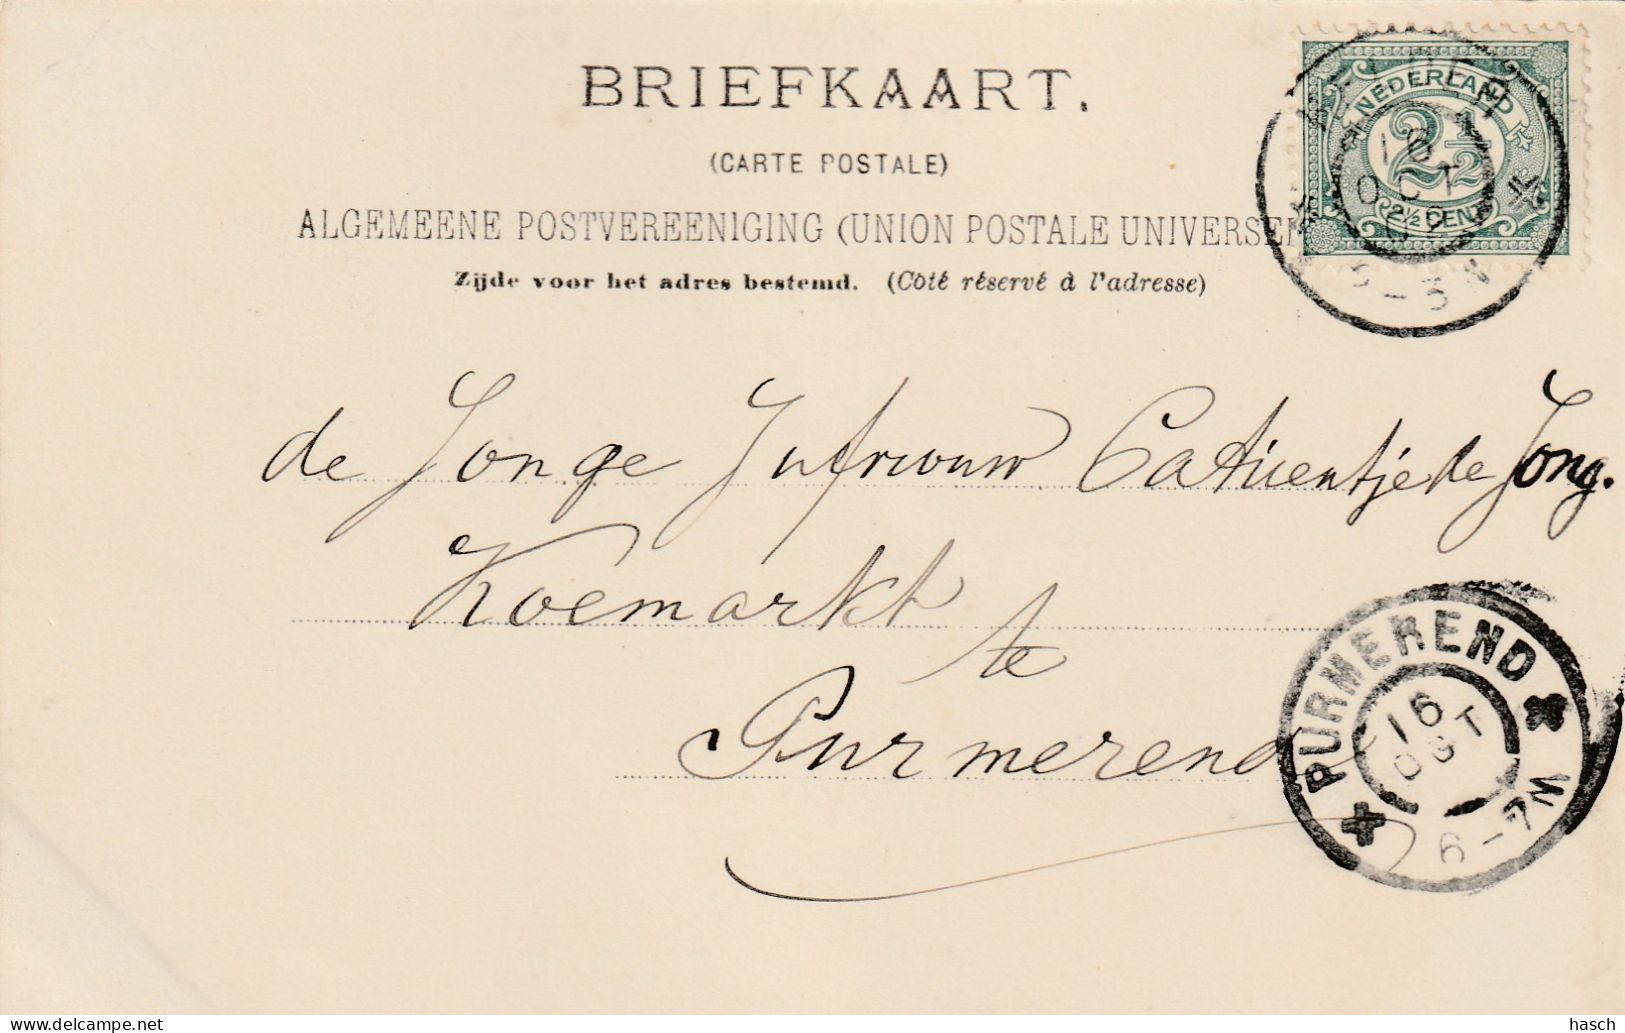 BRIEFKAART.
(CARTE POSTALE)
ALGEMEENE POSTVEREENIGING (UNION POSTALE UNIVERSE
Zijde voor het adres bestemd. (Côté réservé à l'adresse)
NEDERLAND
2½
2½ CENT
HELDER
16
OCT
3-5N
de Jonge Jufrouw Catrientje de Jong.
Koemarkt
te
Purmerend
PURMEREND
16
OCT
6-7N
hasch